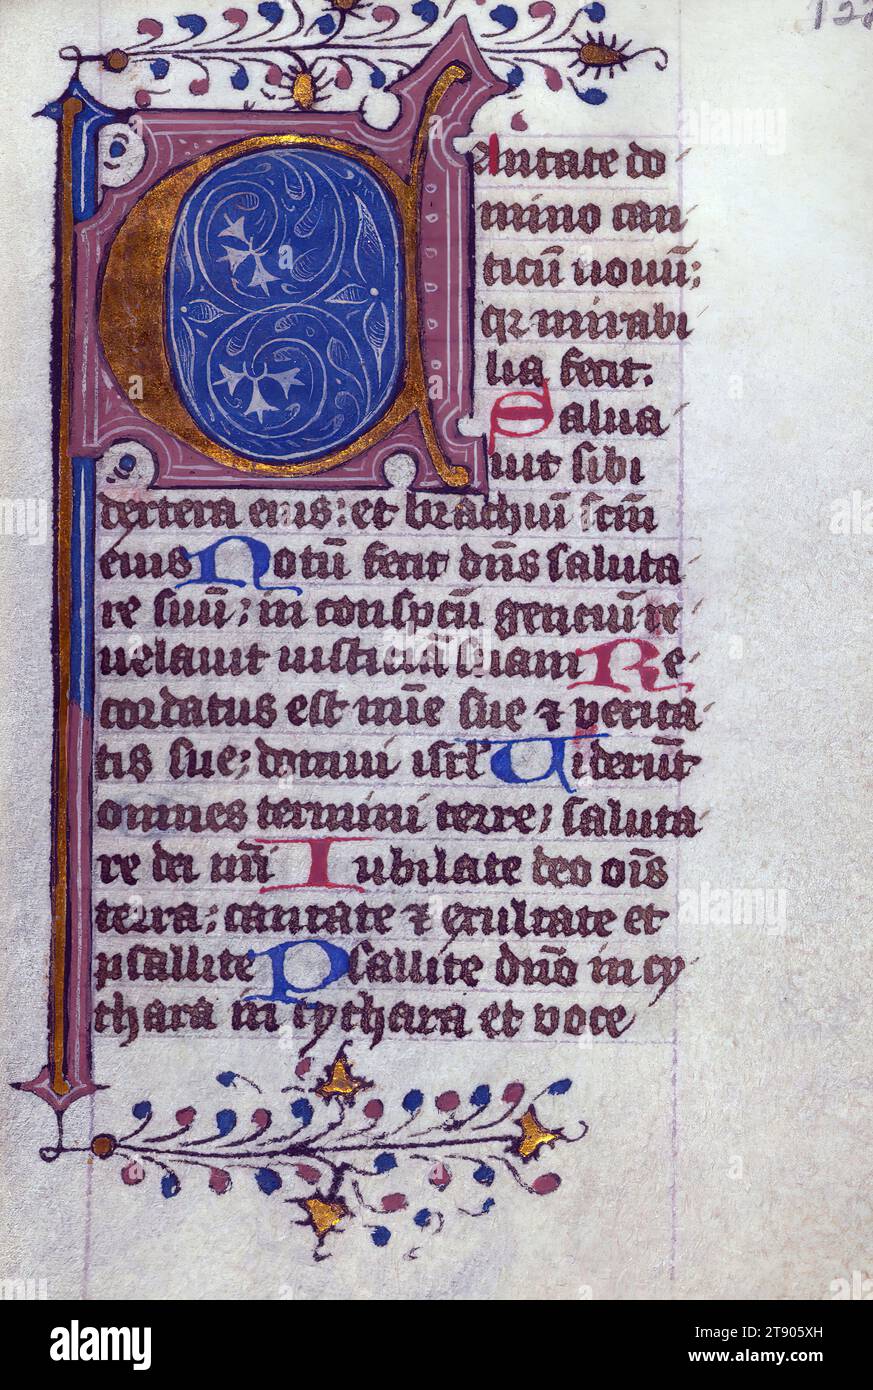 122
CAntate do
mino can
ticū nouū;
qr mirabi
lia fecit.
Salua
uit sibi
dextera eius: et brachiū scm̄
eius Notū fecit dn̄s saluta
re suū; in conspcū gencium re
uelauit iusticiā suam Re
cordatus est mīe sue ⁊ verita
tis sue; domui isrl̄ Uiderūt
omnes termini terre; saluta
re dei nr̄i Iubilate deo oīs
terra; cantate ⁊ exultate et
psallite Psallite dn̄o in cy
thara in cythara et voce
alamy
Image ID: 2T905XH
www.alamy.com